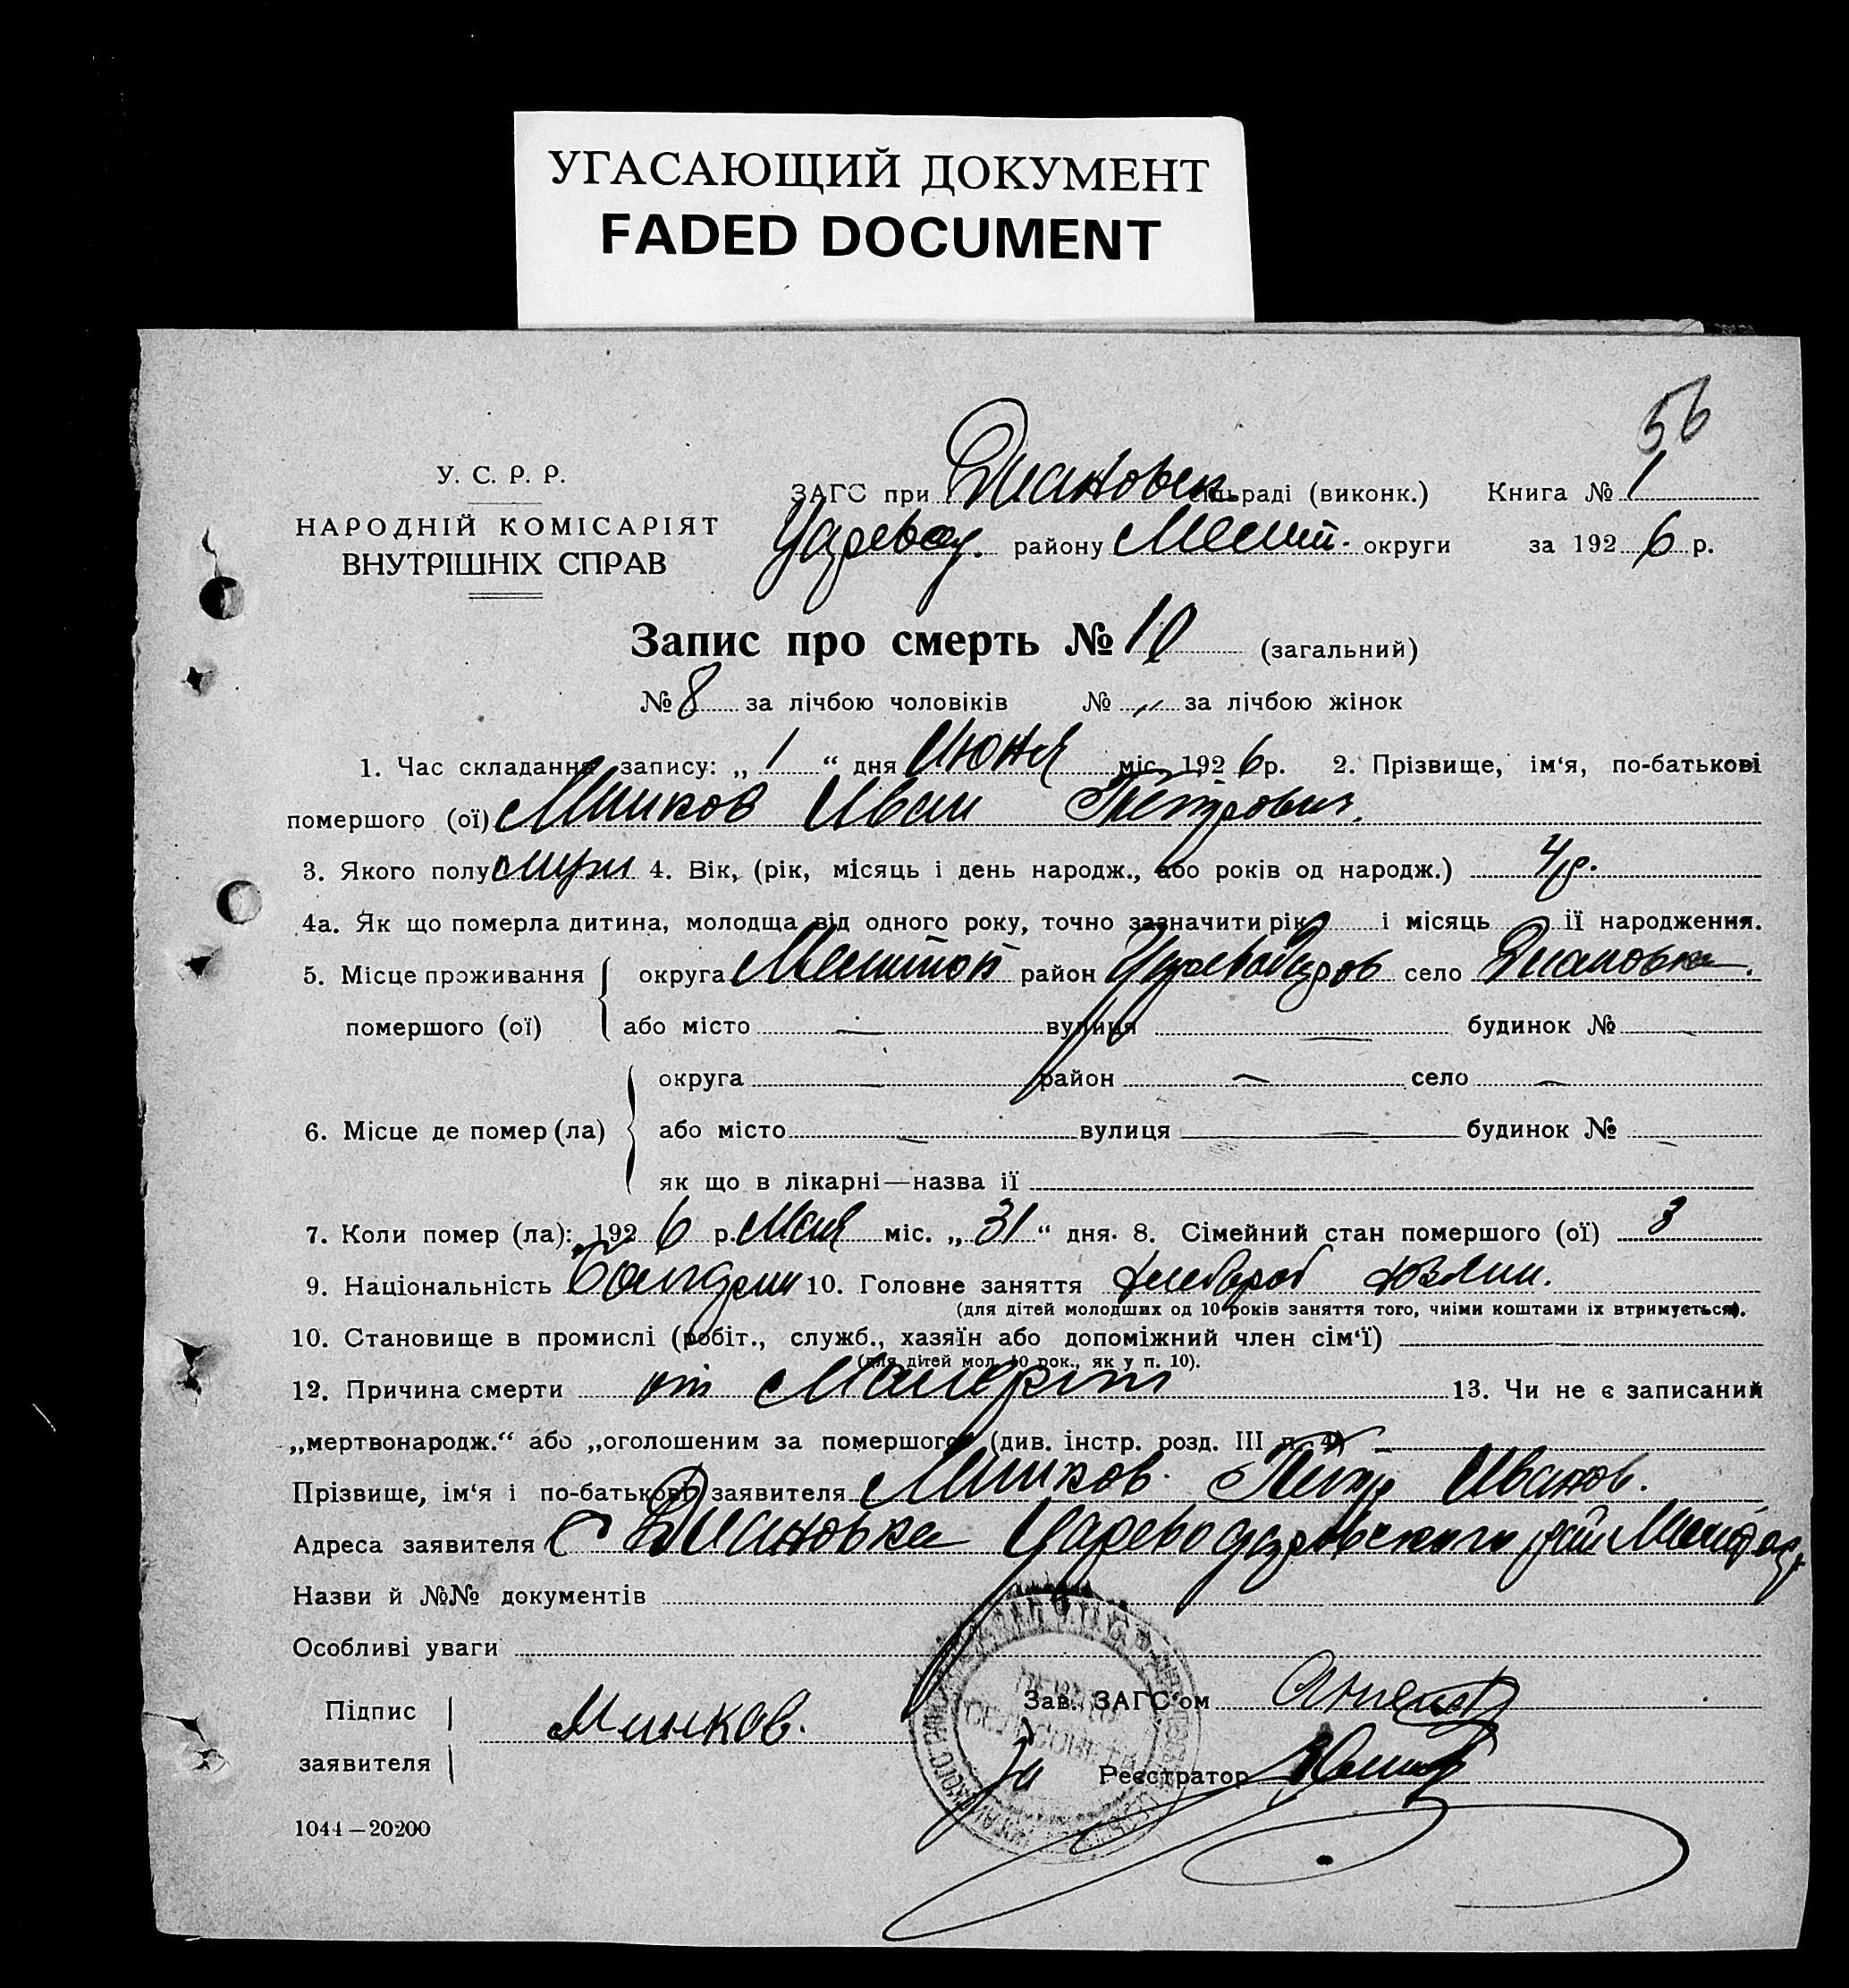 УГАСАЮЩИЙ ДОКУМЕНТ
FADED DOCUMENT
56
У. С. Р. Р.
НАРОДНІЙ КОМІСАРІЯТ
ВНУТРІШНІХ СПРАВ
ЗАГС при Диановск раді (виконк.) Книга № 1
району Мелит. округи за 1926 р.
Запис про смерть № 10 (загальний)
№ 8 за лічбою чоловіків № „ за лічбою жінок
1. Час складання запису: „1“ дня Июня міс. 1926 р. 2. Прізвище, ім‘я, по-батькові
помершого (ої) Минков Иван Петрович.
3. Якого полу муж 4. Вік, (рік, місяць і день народж., або років од народж.) 4 р.
4а. Як що померла дитина, молодща від одного року, точно зазначити рік і місяць ії народження.
5. Місце проживання округа Мелитоп район село Диановка.
помершого (ої) або місто — вулиця — будинок № —
округа — район — село —
6. Місце де помер (ла) або місто — вулиця — будинок № —
як що в лікарні—назва ії
7. Коли помер (ла): 1926 р. Мая міс. „31“ дня. 8. Сімейний стан помершого (ої) 3
9. Національність Болгарин 10. Головне заняття Хлебороб
(для дітей молодших од 10 років заняття того, чиїми коштами їх втримується).
10. Становище в промислі (робіт., служб., хазяїн або допоміжний член сім‘ї) —
(для дітей мол. 10 рок., як у п. 10).
12. Причина смерти от 13. Чи не є записаний
„мертвонародж.“ або „оголошеним за помершого“ (див. інстр. розд. III п. 4) —
Прізвище, ім‘я і по-батькові заявителя Минков. Петр Иванов.
Адреса заявителя С Диановка Цареводаровского рай
Назви й №№ документів
Особливі уваги
Підпис
заявителя Минков.
Зав. ЗАГС‘ом
За Реєстратор
1044—20200